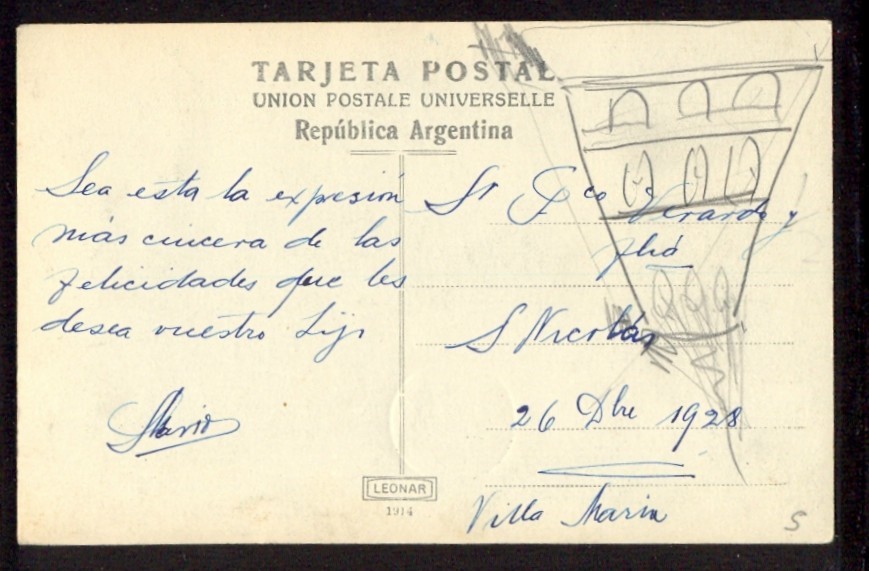 TARJETA POSTAL
UNION POSTALE UNIVERSELLE
República Argentina
Sea esta la expresión
más cincera de las
felicidades que les
desea vuestro hijo
Mario
Sr Fco Verardo y
flia
S Nicolás
26 Dbre 1928
Villa Maria
LEONAR
1914
S